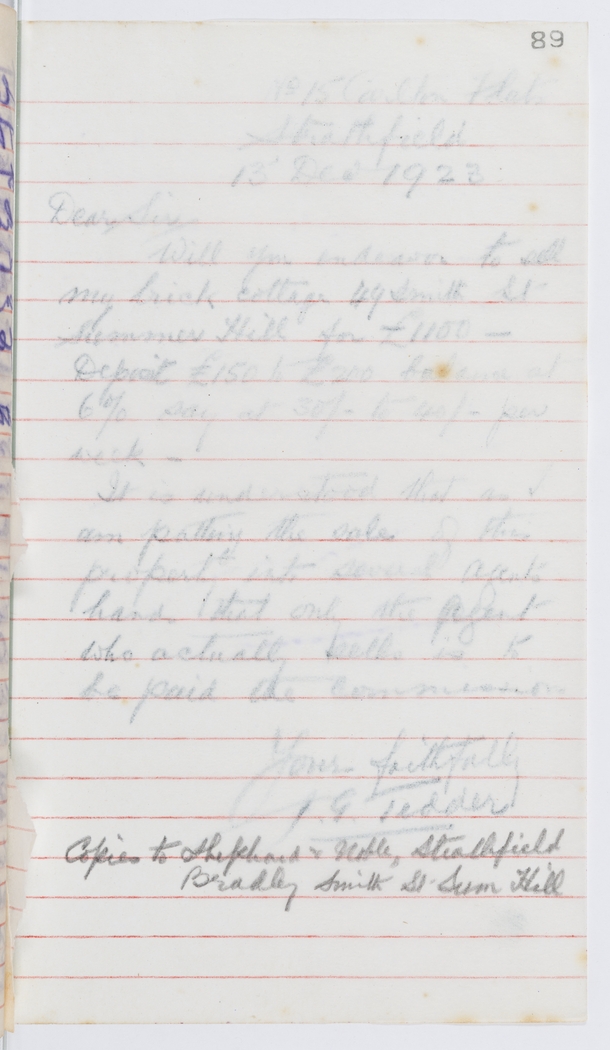 89
No 15 Carlton Flats
Strathfield
13 Dec 1923
Dear Sir
Will you endeavor to sell
my brick cottage 49 Smith St
Summer Hill for £1100 —
Deposit £150 to £200 balance at
6% say at 30/- to 40/- per
week —
It is understood that as I
am putting the sale of this
property into several agents
hands that only the agent
who actually sells is to
be paid the commission
Yours faithfully
J. G. Tedder
Copies to Shephard & Noble, Strathfield
Bradley Smith St Sum Hill